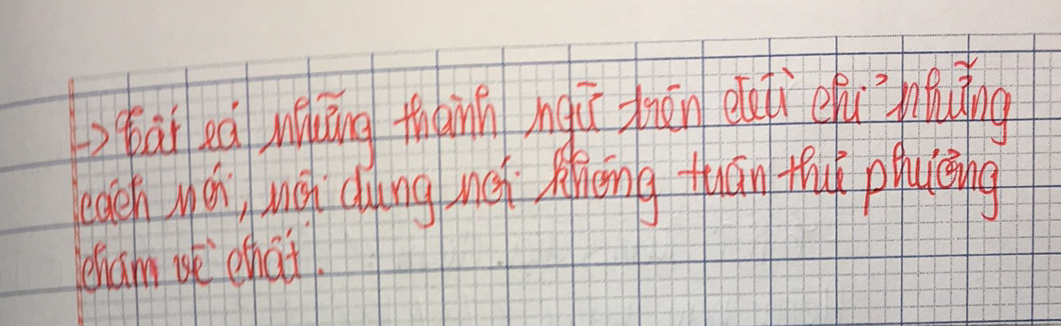 -> Tất cả những thành ngữ trên đều chỉ những
cách nói, nội dung nói không tuân thủ phương
châm về chất.